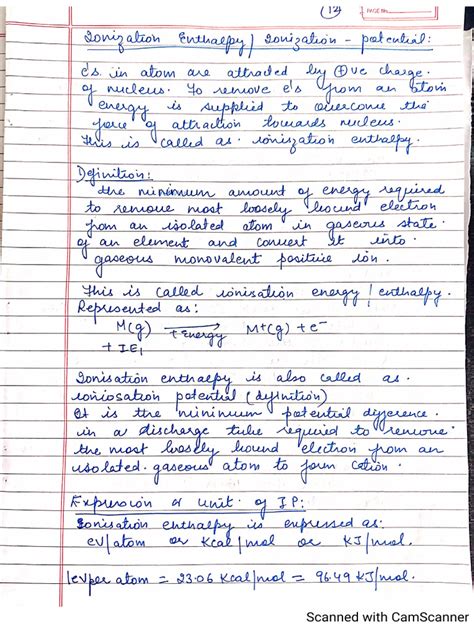 (12)
PAGE No.
Ionization Enthalpy / Ionization - potential:
e's in atom are attracted by ⊕ve charge.
of nucleus. To remove e's from an atom
energy is supplied to overcome the
force of attraction towards nucleus.
This is called as ionization enthalpy.
Definition:
the minimum amount of energy required
to remove most loosely bound electron
from an isolated atom in gaseous state.
of an element and convert it into.
gaseous monovalent positive ion.
This is called ionisation energy / enthalpy.
Represented as:
M(g) ⟶ M+(g) + e-
+ Energy
+ IE1
Ionisation enthalpy is also called as.
ioniosation potential (definition)
It is the minimum potential difference.
in a discharge tube required to remove
the most loosely bound electron from an
isolated gaseous atom to form cation.
Expression or unit of IP:
Ionisation enthalpy is expressed as:
eV/atom or Kcal/mol or KJ/mol.
1eV per atom = 23.06 Kcal/mol = 96.49 KJ/mol.
Scanned with CamScanner